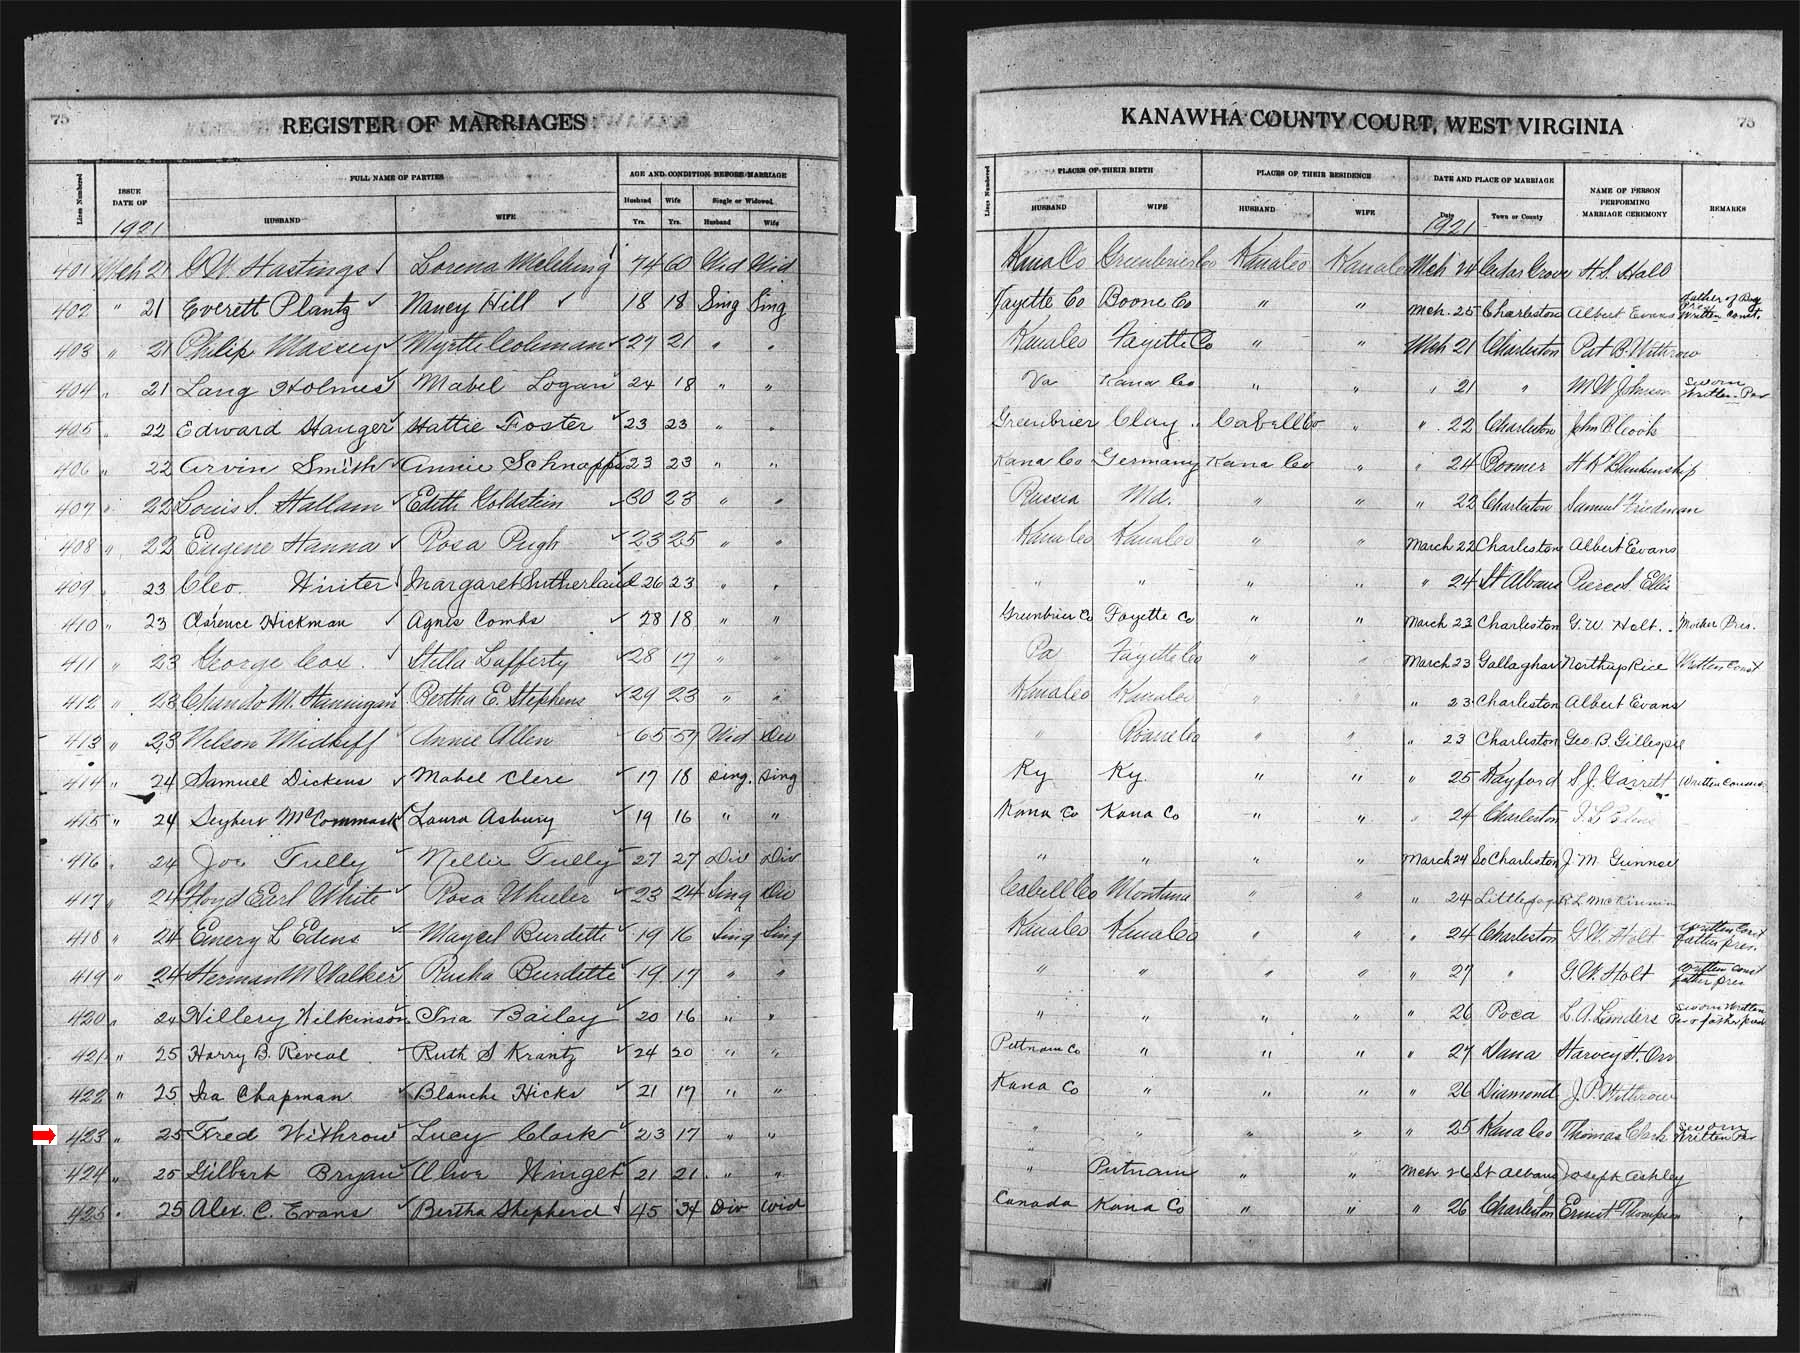 75
REGISTER OF MARRIAGES
Lines Numbered
ISSUE DATE OF
FULL NAME OF PARTIES
AGE AND CONDITION BEFORE MARRIAGE
HUSBAND
WIFE
Husband
Wife
Single or Widowed.
Yrs.
Yrs.
Husband
Wife
1921
401 Mch 21 G W. Hastings Lorena 74 60 Wid Wid
402 " 21 Everett Plantz Nancy Hill 18 18 Sing Sing
403 " 21 Philip Massey Myrtle Coleman 27 21 " "
404 " 21 Lang Holmes Mabel Logan 24 18 " "
405 " 22 Edward Hanger Hattie Foster 23 23 " "
406 " 22 Arvin Smith Annie Schnapps 23 23 " "
407 " 22 Louis S. Hallam Edith Goldstein 30 23 " "
408 " 22 Eugene Hanna Rosa Pugh 23 25 " "
409 " 23 Cleo. Hinter Margaret Sutherland 26 23 " "
410 " 23 Clarence Hickman Agnes Combs 28 18 " "
411 " 23 George Cox. Stella Lafferty 28 17 " "
412 " 23 M. Hannigan Bertha E. Stephens 29 23 " "
413 " 23 Nelson Midkiff Annie Allen 65 57 Wid Div
414 " 24 Samuel Dickens Mabel Clere 17 18 Sing. Sing
415 " 24 McCommack Laura Asbury 19 16 " "
416 " 24 Joe Tully Nellie Tully 27 27 Div Div
417 " 24 Floyd Earl White Rosa Wheeler 23 24 Sing Div
418 " 24 Emery L Edens Maycel Burdette 19 16 Sing Sing
419 " 24 Herman M Walker Burdette 19 17 " "
420 " 24 Hillery Wilkinson Ina Bailey 20 16 " "
421 " 25 Harry B. Reveal Ruth S Krantz 24 20 " "
422 " 25 Ira Chapman Blanche Hicks 21 17 " "
423 " 25 Fred Withrow Lucy Clark 23 17 " "
424 " 25 Gilbert Bryan Olive Winget 21 21 " "
425 " 25 Alex. C. Evans Bertha Shepherd 45 34 Div Wid
KANAWHA COUNTY COURT, WEST VIRGINIA
75
Lines Numbered
PLACES OF THEIR BIRTH
PLACES OF THEIR RESIDENCE
DATE AND PLACE OF MARRIAGE
NAME OF PERSON PERFORMING MARRIAGE CEREMONY
REMARKS
HUSBAND
WIFE
HUSBAND
WIFE
Date
Town or County
1921
Kana Co Greenbrier Co Kana Co Kana Co Mch 24 Cedar Grove H. S. Hall
Fayette Co Boone Co " " Mch. 25 Charleston Albert Evans Father of Boy Pres Written Const.
Kana Co Fayette Co " " Mch 21 Charleston Pat B. Withrow
Va Kana Co " " " 21 " M. W. Johnson Sworn Written Par
Greenbrier Clay " Cabell Co " " 22 Charleston John P. Cook
Kana Co Germany Kana Co " " 24 Boomer H K Blankenship
Russia Md. " " " 22 Charleston Samuel Friedman
Kana Co Kana Co " " March 22 Charleston Albert Evans
" " " " " 24 St Albans Pierce S. Ellis
Greenbrier Co Fayette Co " " March 23 Charleston G. W. Holt. Mother Pres.
Pa Fayette Co " " March 23 Gallaghar Northup Rice Written Const
Kana Co Kana Co " " " 23 Charleston Albert Evans
" Roane Co " " " 23 Charleston Geo. B. Gillespie
Ky Ky. " " " 25 Kayford S. J. Garrett Written Consent
Kana Co Kana Co " " " 24 Charleston
" " " " March 24 So Charleston J. M. Gunnoe
Cabell Co Montana " " " 24 Littlepage R. L. McKinnin
Kana Co Kana Co " " " 24 Charleston G. W. Holt Written Const father pres.
" " " " " 27 " G. W. Holt Written Const father pres
" " " " " 26 Poca L. A. Sworn Written
Putnam Co " " " " 27 Dana Harvey H. Orr
Kana Co " " " " 26 Diamond J. P. Withrow
" " " " " 25 Kana Co Thomas Clark Sworn Written Par
" Putnam " " Mch 26 St Albans Joseph Ashley
Canada Kana Co " " " 26 Charleston Ernest Thompson